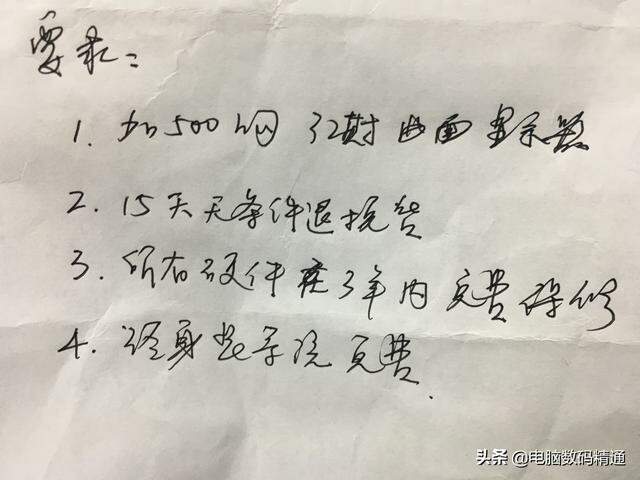 要求:
1. 加500 换 32吋曲面显示器
2. 15天无条件退换货
3. 所有硬件在3年内免费保修
4. 终身装系统免费.
头条 @电脑数码精通